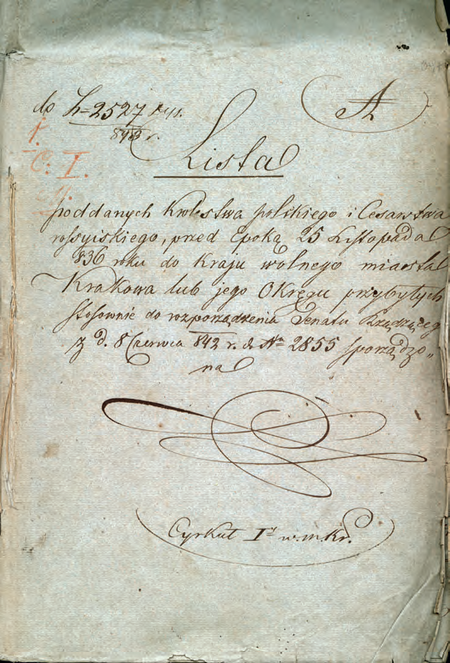 do L=2527 
842 r.
A
1.
C. I.
Lista
poddanych Krolestwa polskiego i Cesarstwa
rossyiskiego, przed Epoką 25 Listopada
836 roku do Kraju wolnego miasta
Krakowa lub jego Okręgu przybyłych
stosownie do rozporządzenia Senatu Rządzącego
z d. 8 Czerwca 842 r. do Nru 2855 sporządzo=
na
Cyrkuł Iy w.m.Kr.